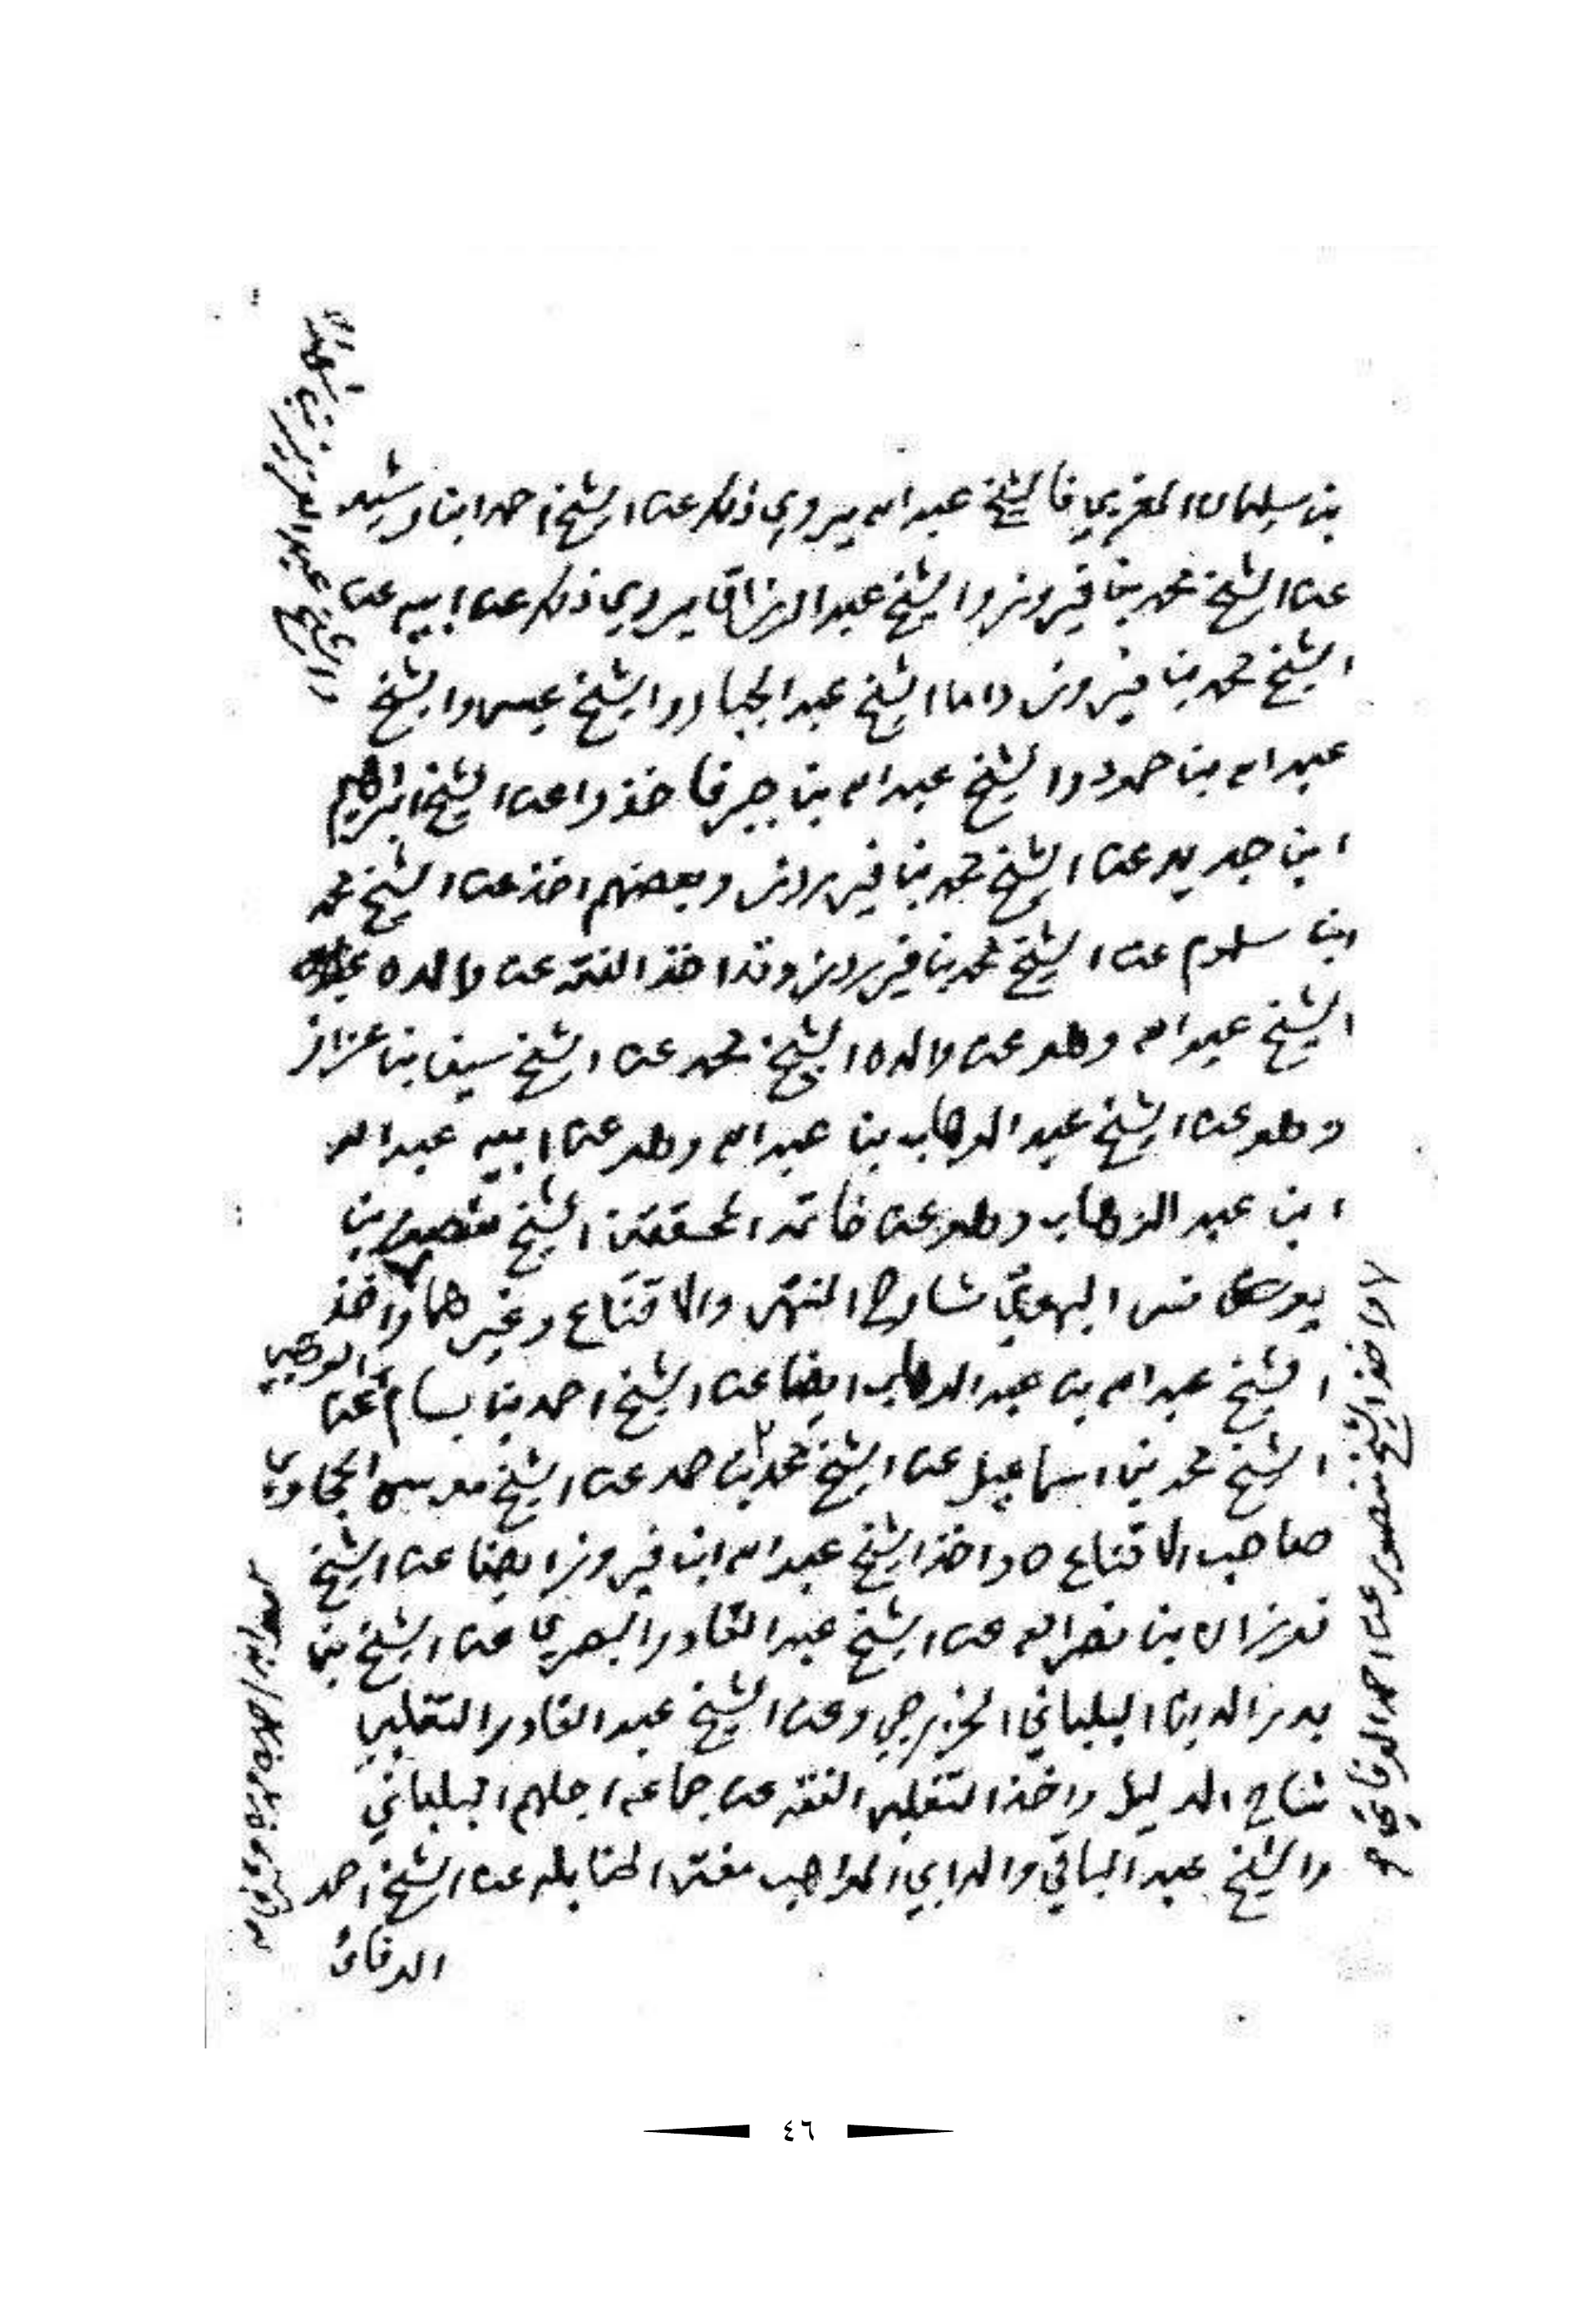 بن سليمان المغربي فالشيخ عبد الله يروي ذلك عن الشيخ احمد ابن رشيد
عن الشيخ محمد بن فيروز والشيخ عبد الرزاق يروي ذلك عن ابيه عن
الشيخ محمد بن فيروز واما الشيخ عبد الجبار والشيخ عيسى والشيخ
عبد الله بن حمود والشيخ عبد الله بن جبر فاخذوا عن الشيخ ابراهيم
ابن جديد عن الشيخ محمد بن فيروز وبعضهم اخذ عن الشيخ محمد
ابن سلوم عن الشيخ محمد بن فيروز وقد اخذ الفقه عن والده
الشيخ عبد الله وهو عن والده الشيخ محمد عن الشيخ سيف بن عزاز
وهو عن الشيخ عبد الوهاب بن عبد الله وهو عن ابيه عبد الله
ابن عبد الوهاب وهو عن خاتمة المحققين الشيخ منصور بن
يونس البهوتي شارح المنتهى والاقناع وغيرهما واخذ
الشيخ عبد الله بن عبد الوهاب ايضا عن الشيخ احمد بن بسام عن
الشيخ محمد بن اسماعيل عن الشيخ محمد بن حمد عن الشيخ موسى الحجاوي
صاحب الاقناع ه واخذ الشيخ عبد الله ابن فيروز ايضا عن الشيخ
فوزان بن نصر الله عن الشيخ عبد القادر البصري عن الشيخ بن
بدر الدين البلباني الخزرجي وعن الشيخ عبد القادر التغلبي
شارح الدليل واخذ التغلبي الفقه عن جماعه اجلهم البلباني
والشيخ عبد الباقي والد ابي المواهب مفتى الحنابله عن الشيخ احمد
الوفائي
واخذ الشيخ منصور عن احمد الوفائي
٤٦